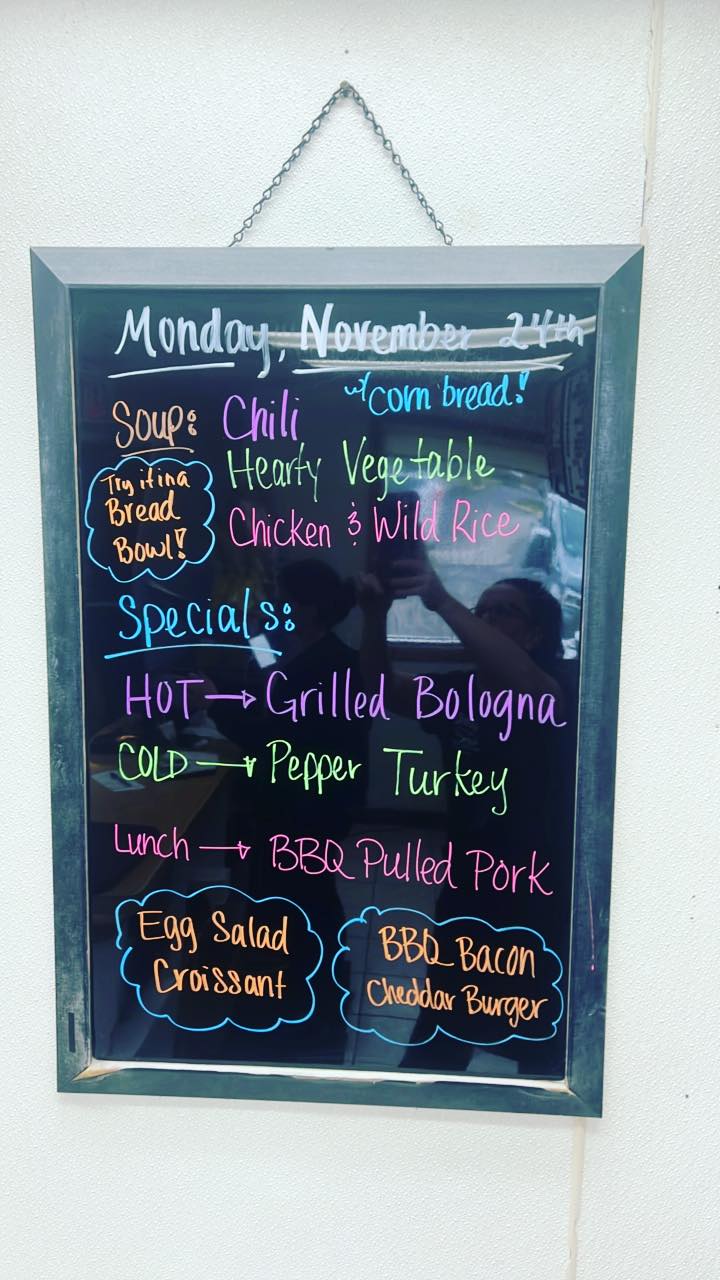 Monday, November 24th
Soup: Chili w/ Corn bread!
Hearty Vegetable
Chicken & Wild Rice
Try it in a
Bread
Bowl!
Specials:
HOT → Grilled Bologna
COLD → Pepper Turkey
Lunch → BBQ Pulled Pork
Egg Salad
Croissant
BBQ Bacon
Cheddar Burger